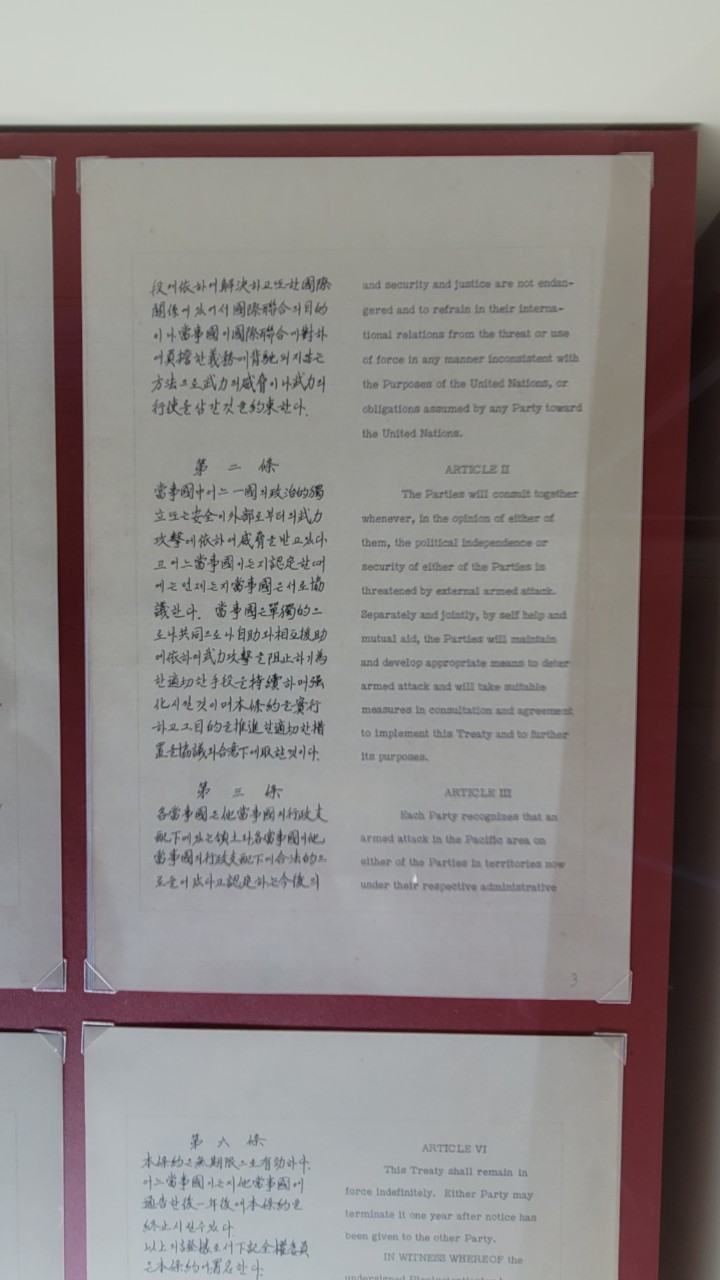 段에依하여解決하고또한國際
關係에있어서國際聯合의目的
이나當事國이國際聯合에對하
여負擔한義務에背馳되지않는
方法으로武力의威脅이나武力의
行使를삼갈것을約束한다.
第 二 條
當事國中어느一國의政治的獨
立또는安全이外部로부터의武力
攻擊에依하여威脅을받고있다
고어느當事國이든지認定할때
에는언제든지當事國은서로協
議한다. 當事國은單獨的으
로나共同으로나自助와相互援助
에依하여武力攻擊을阻止하기爲
한適切한手段을持續하며强
化시킬것이며本條約을實行
하고그目的을推進할適切한措
置를協議와合意下에取할것이다.
第 三 條
各當事國은他當事國의行政支
配下에있는領土와各當事國이他
當事國의行政支配下에合法的으
로들어갔다고認定하는今後의
and security and justice are not endan-
gered and to refrain in their interna-
tional relations from the threat or use
of force in any manner inconsistent with
the Purposes of the United Nations, or
obligations assumed by any Party toward
the United Nations.
ARTICLE II
The Parties will consult together
whenever, in the opinion of either of
them, the political independence or
security of either of the Parties is
threatened by external armed attack.
Separately and jointly, by self help and
mutual aid, the Parties will maintain
and develop appropriate means to deter
armed attack and will take suitable
measures in consultation and agreement
to implement this Treaty and to further
its purposes.
ARTICLE III
Each Party recognizes that an
armed attack in the Pacific area on
either of the Parties in territories now
under their respective administrative
3
第 六 條
本條約은無期限으로有効하다.
어느當事國이든지他當事國에
通告한後一年後에本條約을
終止시킬수있다.
以上의證據로서下記全權委員
은本條約에署名한다.
ARTICLE VI
This Treaty shall remain in
force indefinitely. Either Party may
terminate it one year after notice has
been given to the other Party.
IN WITNESS WHEREOF the
undersigned